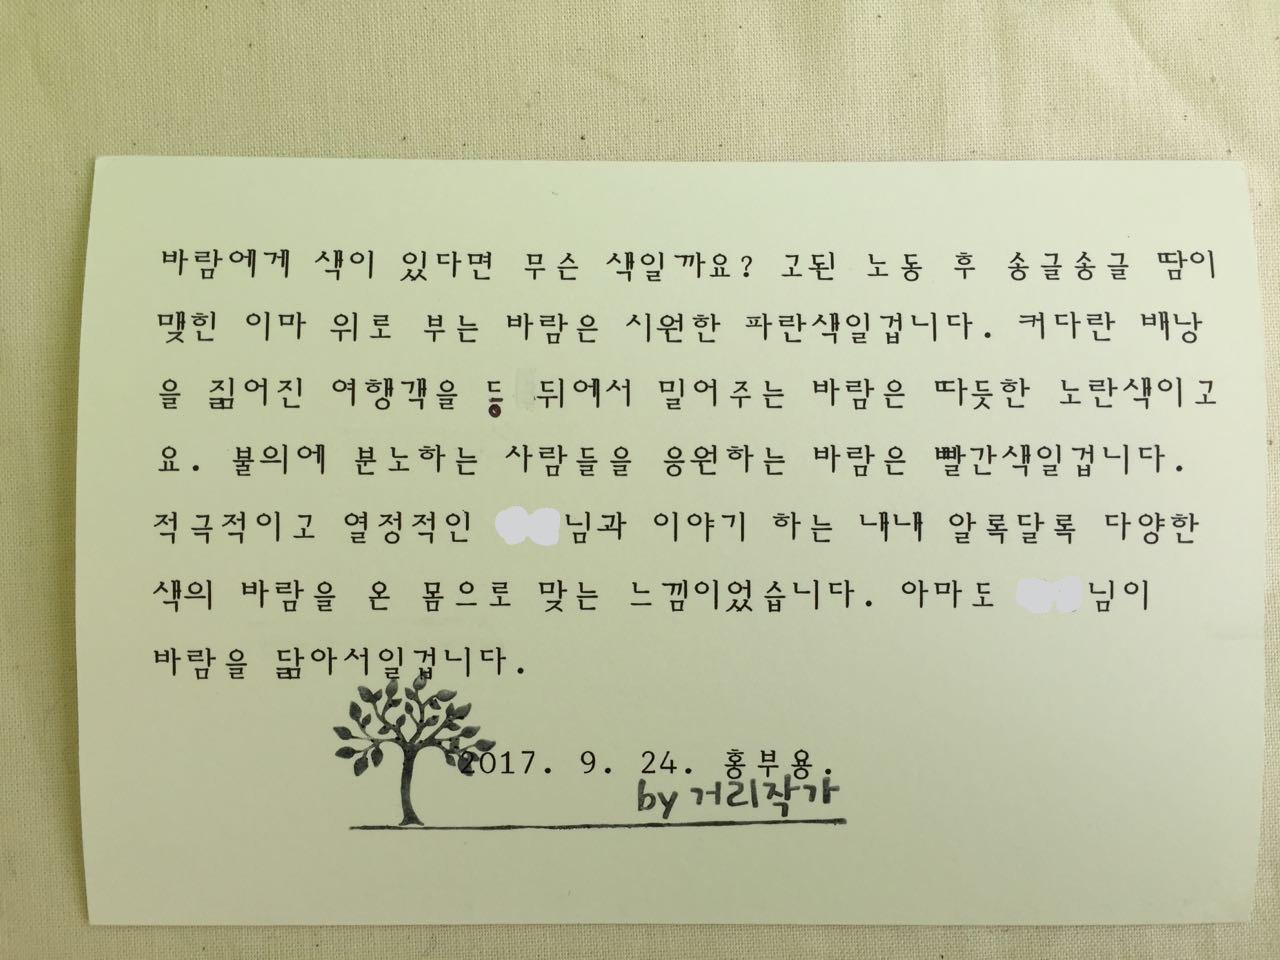 바람에게 색이 있다면 무슨 색일까요? 고된 노동 후 송글송글 땀이
맺힌 이마 위로 부는 바람은 시원한 파란색일겁니다. 커다란 배낭
을 짊어진 여행객을 등 뒤에서 밀어주는 바람은 따듯한 노란색이고
요. 불의에 분노하는 사람들을 응원하는 바람은 빨간색일겁니다.
적극적이고 열정적인 님과 이야기 하는 내내 알록달록 다양한
색의 바람을 온 몸으로 맞는 느낌이었습니다. 아마도 님이
바람을 닮아서일겁니다.
2017. 9. 24. 홍부용.
by 거리작가